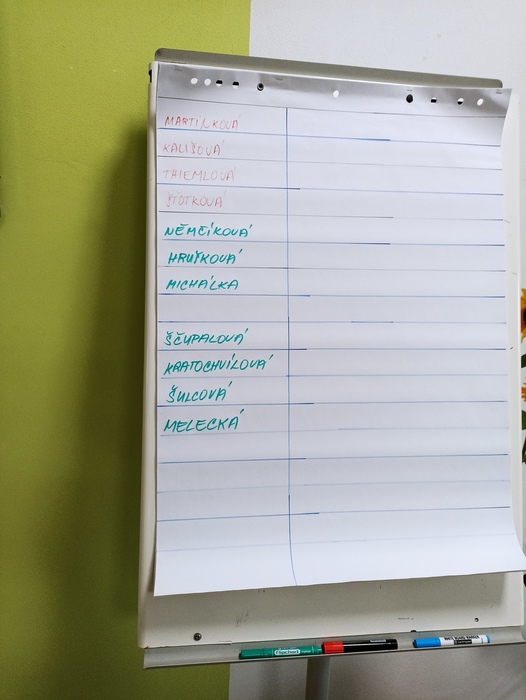 MARTINKOVÁ
KALIŠOVÁ
THIEMLOVÁ
NĚMEČKOVÁ
HRUŠKOVÁ
MICHÁLKA
ŠČUPALOVÁ
KRATOCHVÍLOVÁ
ŠULCOVÁ
MELECKÁ